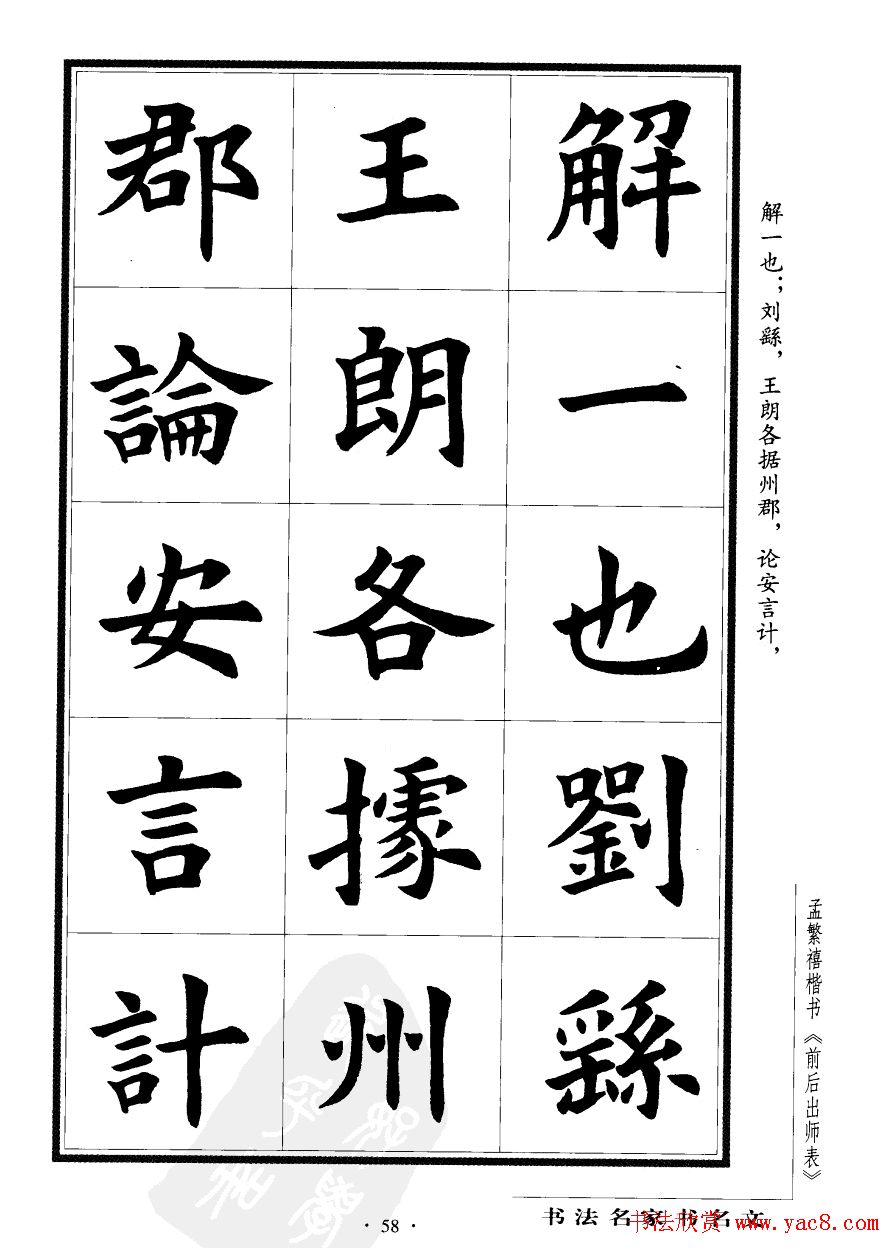 解一也劉繇
王朗各據州
郡論安言計
解一也；刘繇，王朗各据州郡，论安言计，
孟繁禧楷书《前后出师表》
·58·
书法名家书名文
书法欣赏www.yac8.com